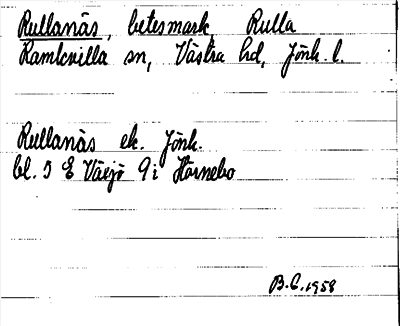 Rullanäs, betesmark, Rulla
Ramkvilla sn, Västra hd, Jönk. l.
Rullanäs ek. Jönk.
bl. 5 E Växjö 9 i Hörnebo
B.E. 1958